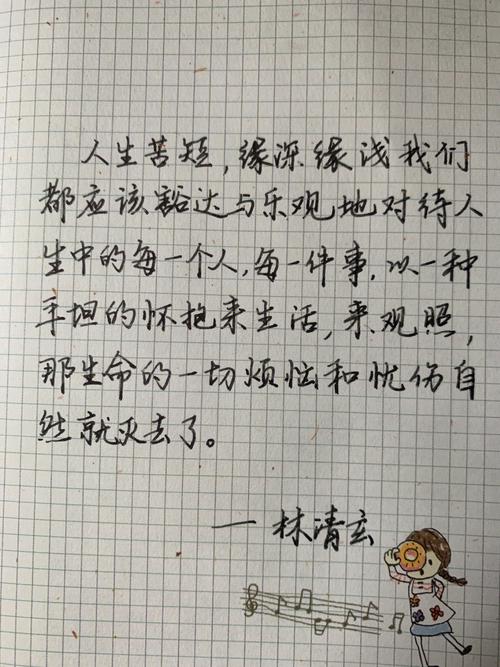 人生苦短，缘深缘浅我们
都应该豁达与乐观地对待人
生中的每一个人，每一件事，以一种
平坦的怀抱来生活，来观照，
那生命的一切烦恼和忧伤自
然就灭去了。
——林清玄